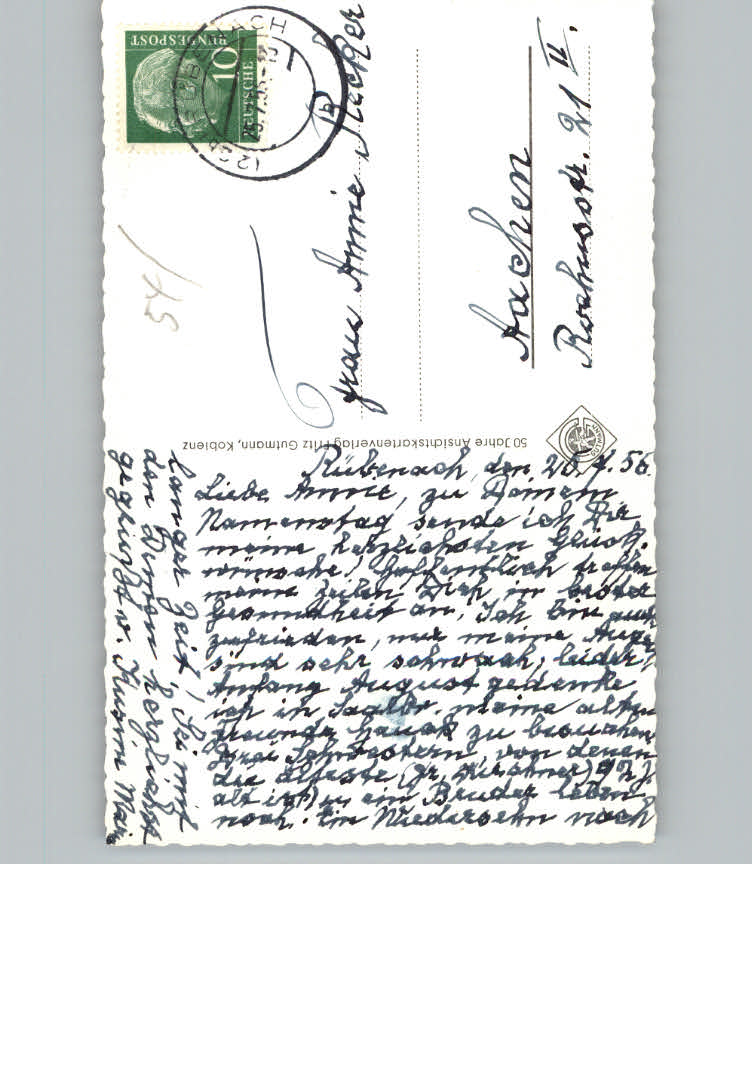 Rübenach, den 26.7.56
Liebe Annie, zu Deinem
Namenstag sende ich Dir
meine herzlichsten Glück-
wünsche! Hoffentlich treffen
meine Zeilen Dich in bester
Gesundheit an. Ich bin auch
zufrieden, nur meine Augen
sind sehr schwach, leider!
Anfang August gedenke
ich in meine alten
Freunde zu besuchen
Drei Schwestern von denen
die älteste (Fr. 92 J.
alt ist) u. ein Bruder leben
noch. Ein Wiedersehn nach
langer Zeit! Seimt
den Deinen herzlichst
gegrüsst v. Kusine Maria
50 Jahre Ansichtskartenverlag Fritz Gutmann, Koblenz
Frau Annie
Aachen
Rochusstr. 21 II.
DEUTSCHE
BUNDESPOST
10
54/